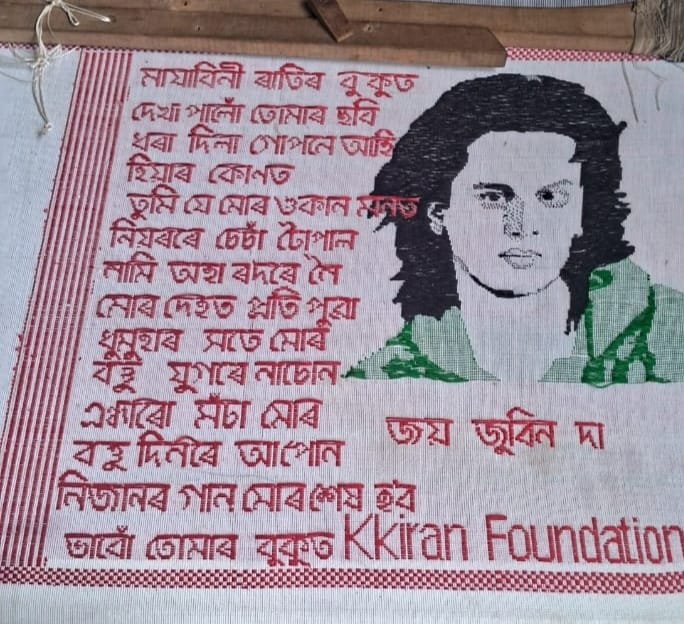 মায়াবিনী ৰাতিৰ বুকুত
দেখা পালোঁ তোমাৰ ছবি
ধৰা দিলা গোপনে আহি
হিয়াৰ কোণত
তুমি যে মোৰ শুকান মনত
নিয়ৰৰে চেঁচা টোপাল
নামি অহা ৰদৰে লৈ
মোৰ দেহত প্ৰতি পুৱা
ধুমুহাৰ সতে মোৰ
বহু যুগৰে নাচোন
এন্ধাৰো সঁচা মোৰ
বহু দিনৰে আপোন
নিজানৰ গান মোৰ শেষ হ'ব
ভাবোঁ তোমাৰ বুকুত
জয় জুবিন দা
KKiran Foundation